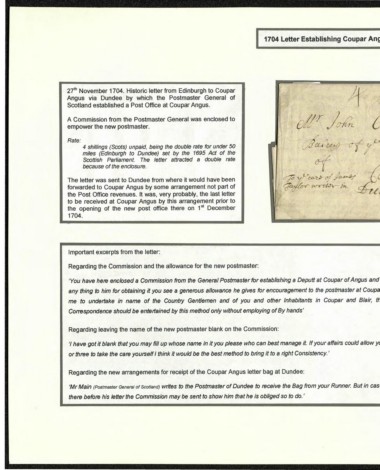 1704 Letter Establishing Coupar Ang
27th November 1704. Historic letter from Edinburgh to Coupar
Angus via Dundee by which the Postmaster General of
Scotland established a Post Office at Coupar Angus.
A Commission from the Postmaster General was enclosed to
empower the new postmaster.
Rate:
4 shillings (Scots) unpaid, being the double rate for under 50
miles (Edinburgh to Dundee) set by the 1695 Act of the
Scottish Parliament. The letter attracted a double rate
because of the enclosure.
The letter was sent to Dundee from where it would have been
forwarded to Coupar Angus by some arrangement not part of
the Post Office revenues. It was, very probably, the last letter
to be received at Coupar Angus by this arrangement prior to
the opening of the new post office there on 1st December
1704.
4
Mr John
of
Important excerpts from the letter:
Regarding the Commission and the allowance for the new postmaster:
'You have here enclosed a Commission from the General Postmaster for establishing a Deputt at Coupar of Angus and
any thing to him for obtaining it you see a generous allowance he gives for encouragement to the postmaster at Coupa
me to undertake in name of the Country Gentlemen and of you and other Inhabitants in Coupar and Blair, th
Correspondence should be entertained by this method only without employing of By hands'
Regarding leaving the name of the new postmaster blank on the Commission:
'I have got it blank that you may fill up whose name in it you please who can best manage it. If your affairs could allow yo
or three to take the care yourself I think it would be the best method to bring it to a right Consistency.'
Regarding the new arrangements for receipt of the Coupar Angus letter bag at Dundee:
'Mr Main (Postmaster General of Scotland) writes to the Postmaster of Dundee to receive the Bag from your Runner. But in cas
there before his letter the Commission may be sent to show him that he is obliged so to do.'